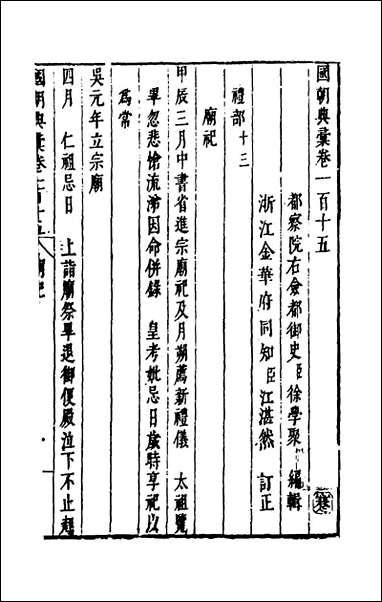 國朝典彙卷一百十五
都察院右僉都御史臣徐學聚 編輯
浙江金華府同知臣江湛然 訂正
禮部十三
廟祀
甲辰三月中書省進宗廟祀及月朔薦新禮儀 太祖覽
畢忽悲愴流涕因命併錄 皇考妣忌日歲時享祀以
為常
吳元年立宗廟
四月 仁祖忌日 上詣廟祭畢退御便殿泣下不止起
國朝典彙卷一百十五 廟祀